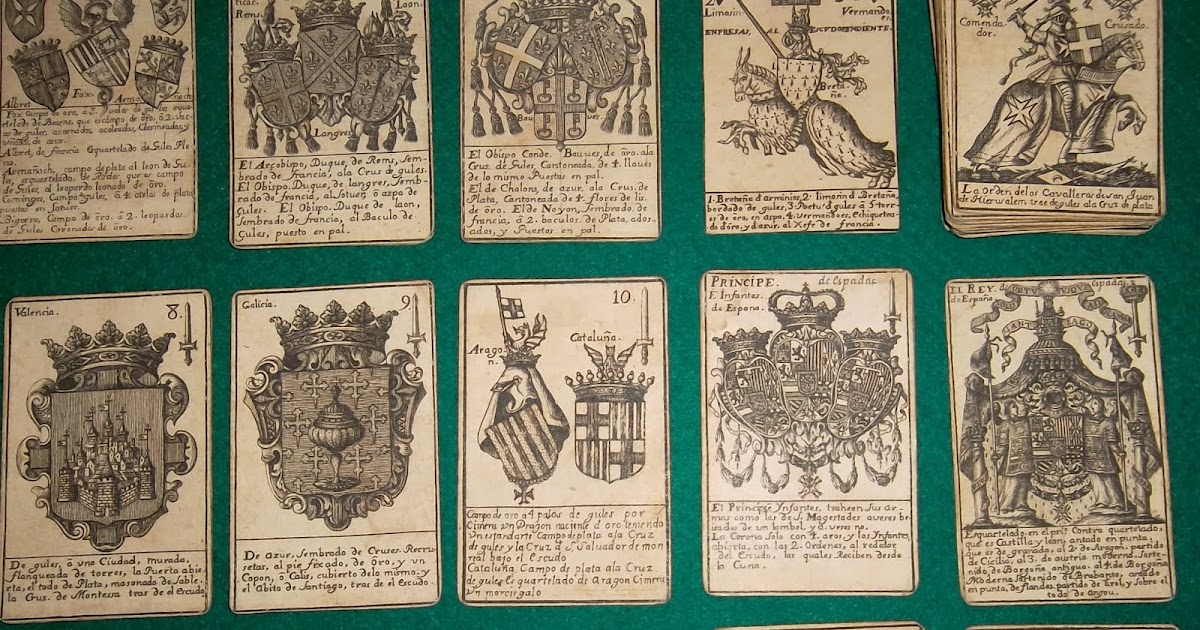 Albret
Fox
Fox campo de oro, a 3. palos de gules
Albret, de francia esquartelado de Gules Ple-
no.
Armañach, campo de plata al leon de Gu-
les, esquartelado, de Rodes, que es campo
de Gules, al leopardo leonado de oro.
Cominges, Campo Gules, a 4. otelas de plata,
puestas en sotuer.
Bigorra, Campo de oro, a 2. leopardos
de Gules Coronados de oro.
Rems.
Laon.
Langres
El Arçobispo, Duque, de Rems, Sem-
brado de francia, ala Crus de gules.
El Obispo. Duque, de langres, Semb-
rado de francia, al Sotuer, o aspa de
Gules. El Obispo. Duque de laon,
Sembrado de francia, al Baculo de
Gules, puesto en pal.
Bau
ves
El Obispo Conde. Bauves, de oro. ala
Crus. de Gules, Cantoneada, de 4. llaves
de lo mismo Puestas en pal.
El de Chalons, de azur, ala Crus, de
Plata, Cantoneada de 4. flores de lis
de oro. El de Noyon, Sembrado, de
francia, a 2. baculos, de Plata, ados-
ados, y Puestos en pal.
Limosin
Vermando
es.
ENPRESAS, AL ESCUDO PENDIENTE.
Breta-
ña.
1. Bretaña d arminios 2. limosin d Bretaña,
bordado de gules. 3. Portu d gules a 3 torr-
es de oro, en aspo. 4. Vermandoes, Echiquetea-
do d oro, y d azur, al Xefe de francia.
Comenda-
dor.
Crusado.
La Orden de los Cavalleros de san Juan
de Hierusalem trae de gules ala Crus de plata
Valencia.
8.
De gules, a una Ciudad, murada,
flanqueada de torres, la Puerta abie
rta, el todo de Plata, masonado de Sable.
la Crus. de Montessa tras de el escudo
Galicia.
9
De azur, Sembrado de Cruses. Recru-
setar, al pie fixado, de oro, y un
Copon, o Calis, cubierto de lo mismo. y
el Abito de Santiago, tras de el Escudo.
10.
Arago
n.
Cataluña.
Campo de oro a 4 palos de gules por
Cimera un Dragon naciente d oro teniendo
Un estandarte Campo de plata ala Cruz
de gules y la Cruz d S. Salvador de mon
real bajo el escudo
Cataluña Campo de plata ala Cruz
de gules esquartelado de Aragon Cimera
Un morciegalo
PRINCIPE. de Espadas
E Infantes.
de Espana.
El Principe Ynfantes, traheen sus ar-
mas como las de S. Magestades averes bri
zadas de un lambel. y d. veres no.
La Corona Solo con 4. aros, y los Ynfantes,
abierta, con las 2. Ordenes, al rededor
del Escudo, las quales Reciben desde
la Cuna.
EL REY. de Espadas
de España
SANT IAGO
Esquartelado, en el pri.º Contra quartelado,
que es Castilla y leon, antado en punta,
que es de granada, al 2.º de Aragon. partido
de Cicilia, al 3.º de austria moderna. Soste-
nido, de Borgoña antigua. al 4.º de Borgoña
Moderna Sostenido de Brabante, antado
en punta, de flandes partido de tirol, y sobre el
todo de anjou.